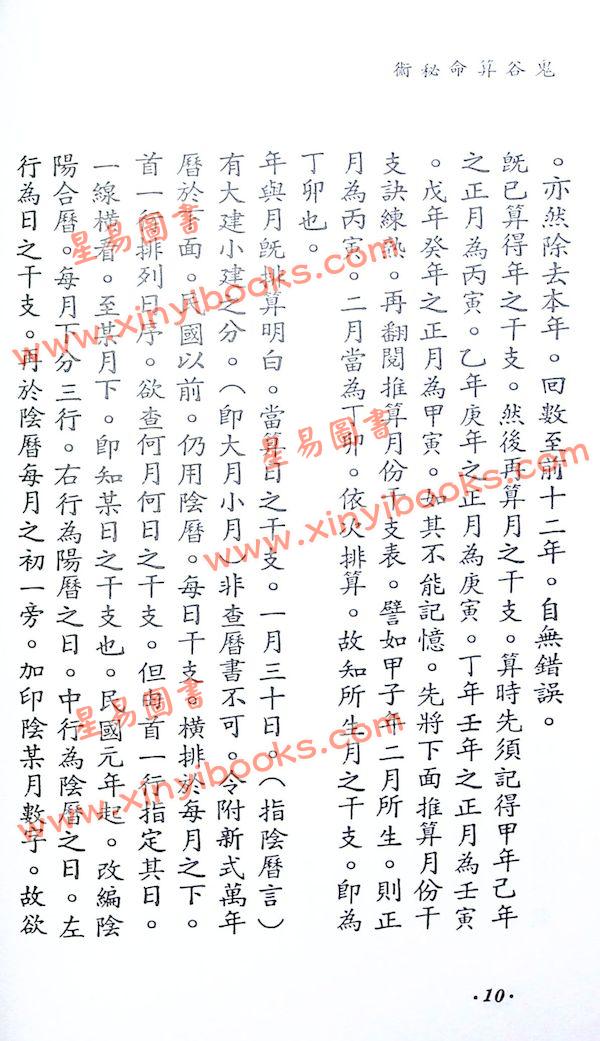 鬼谷算命秘術
。亦然除去本年。回數至前十二年。自無錯誤。
既已算得年之干支。然後再算月之干支。算時先須記得甲年己年
之正月為丙寅。乙年庚年之正月為庚寅。丁年壬年之正月為壬寅
。戊年癸年之正月為甲寅。如其不能記憶。先將下面推算月份干
支訣練熟。再翻閱推算月份干支表。譬如甲子年二月所生。則正
月為丙寅。二月當為丁卯。依次排算。故知所生月之干支。即為
丁卯也。
年與月既排算明白。當算日之干支。一月三十日。(指陰曆言)
有大建小建之分。(即大月小月)非查曆書不可。令附新式萬年
曆於下面。民國以前。仍用陰曆。每日干支。橫排於每月之下。
首一行排列日序。欲查何月何日之干支。但向首一行指定其日。
一線橫看。至某月下。即知某日之干支也。民國元年起。改編陰
陽合曆。每月下分三行。右行為陽曆之日。中行為陰曆之日。左
行為日之干支。再於陰曆每月之初一旁。加印陰某月數字。故欲
·10·
星易圖書
www.xinyibooks.com
星易圖書
www.xinyibooks.com
星易圖書
www.xinyibooks.com